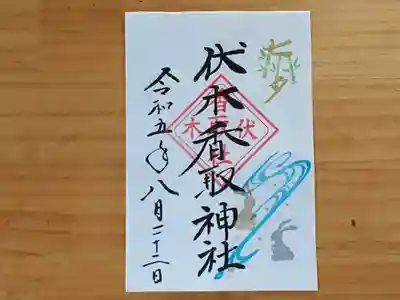 七夕
伏木香取神社
令和五年八月二十二日